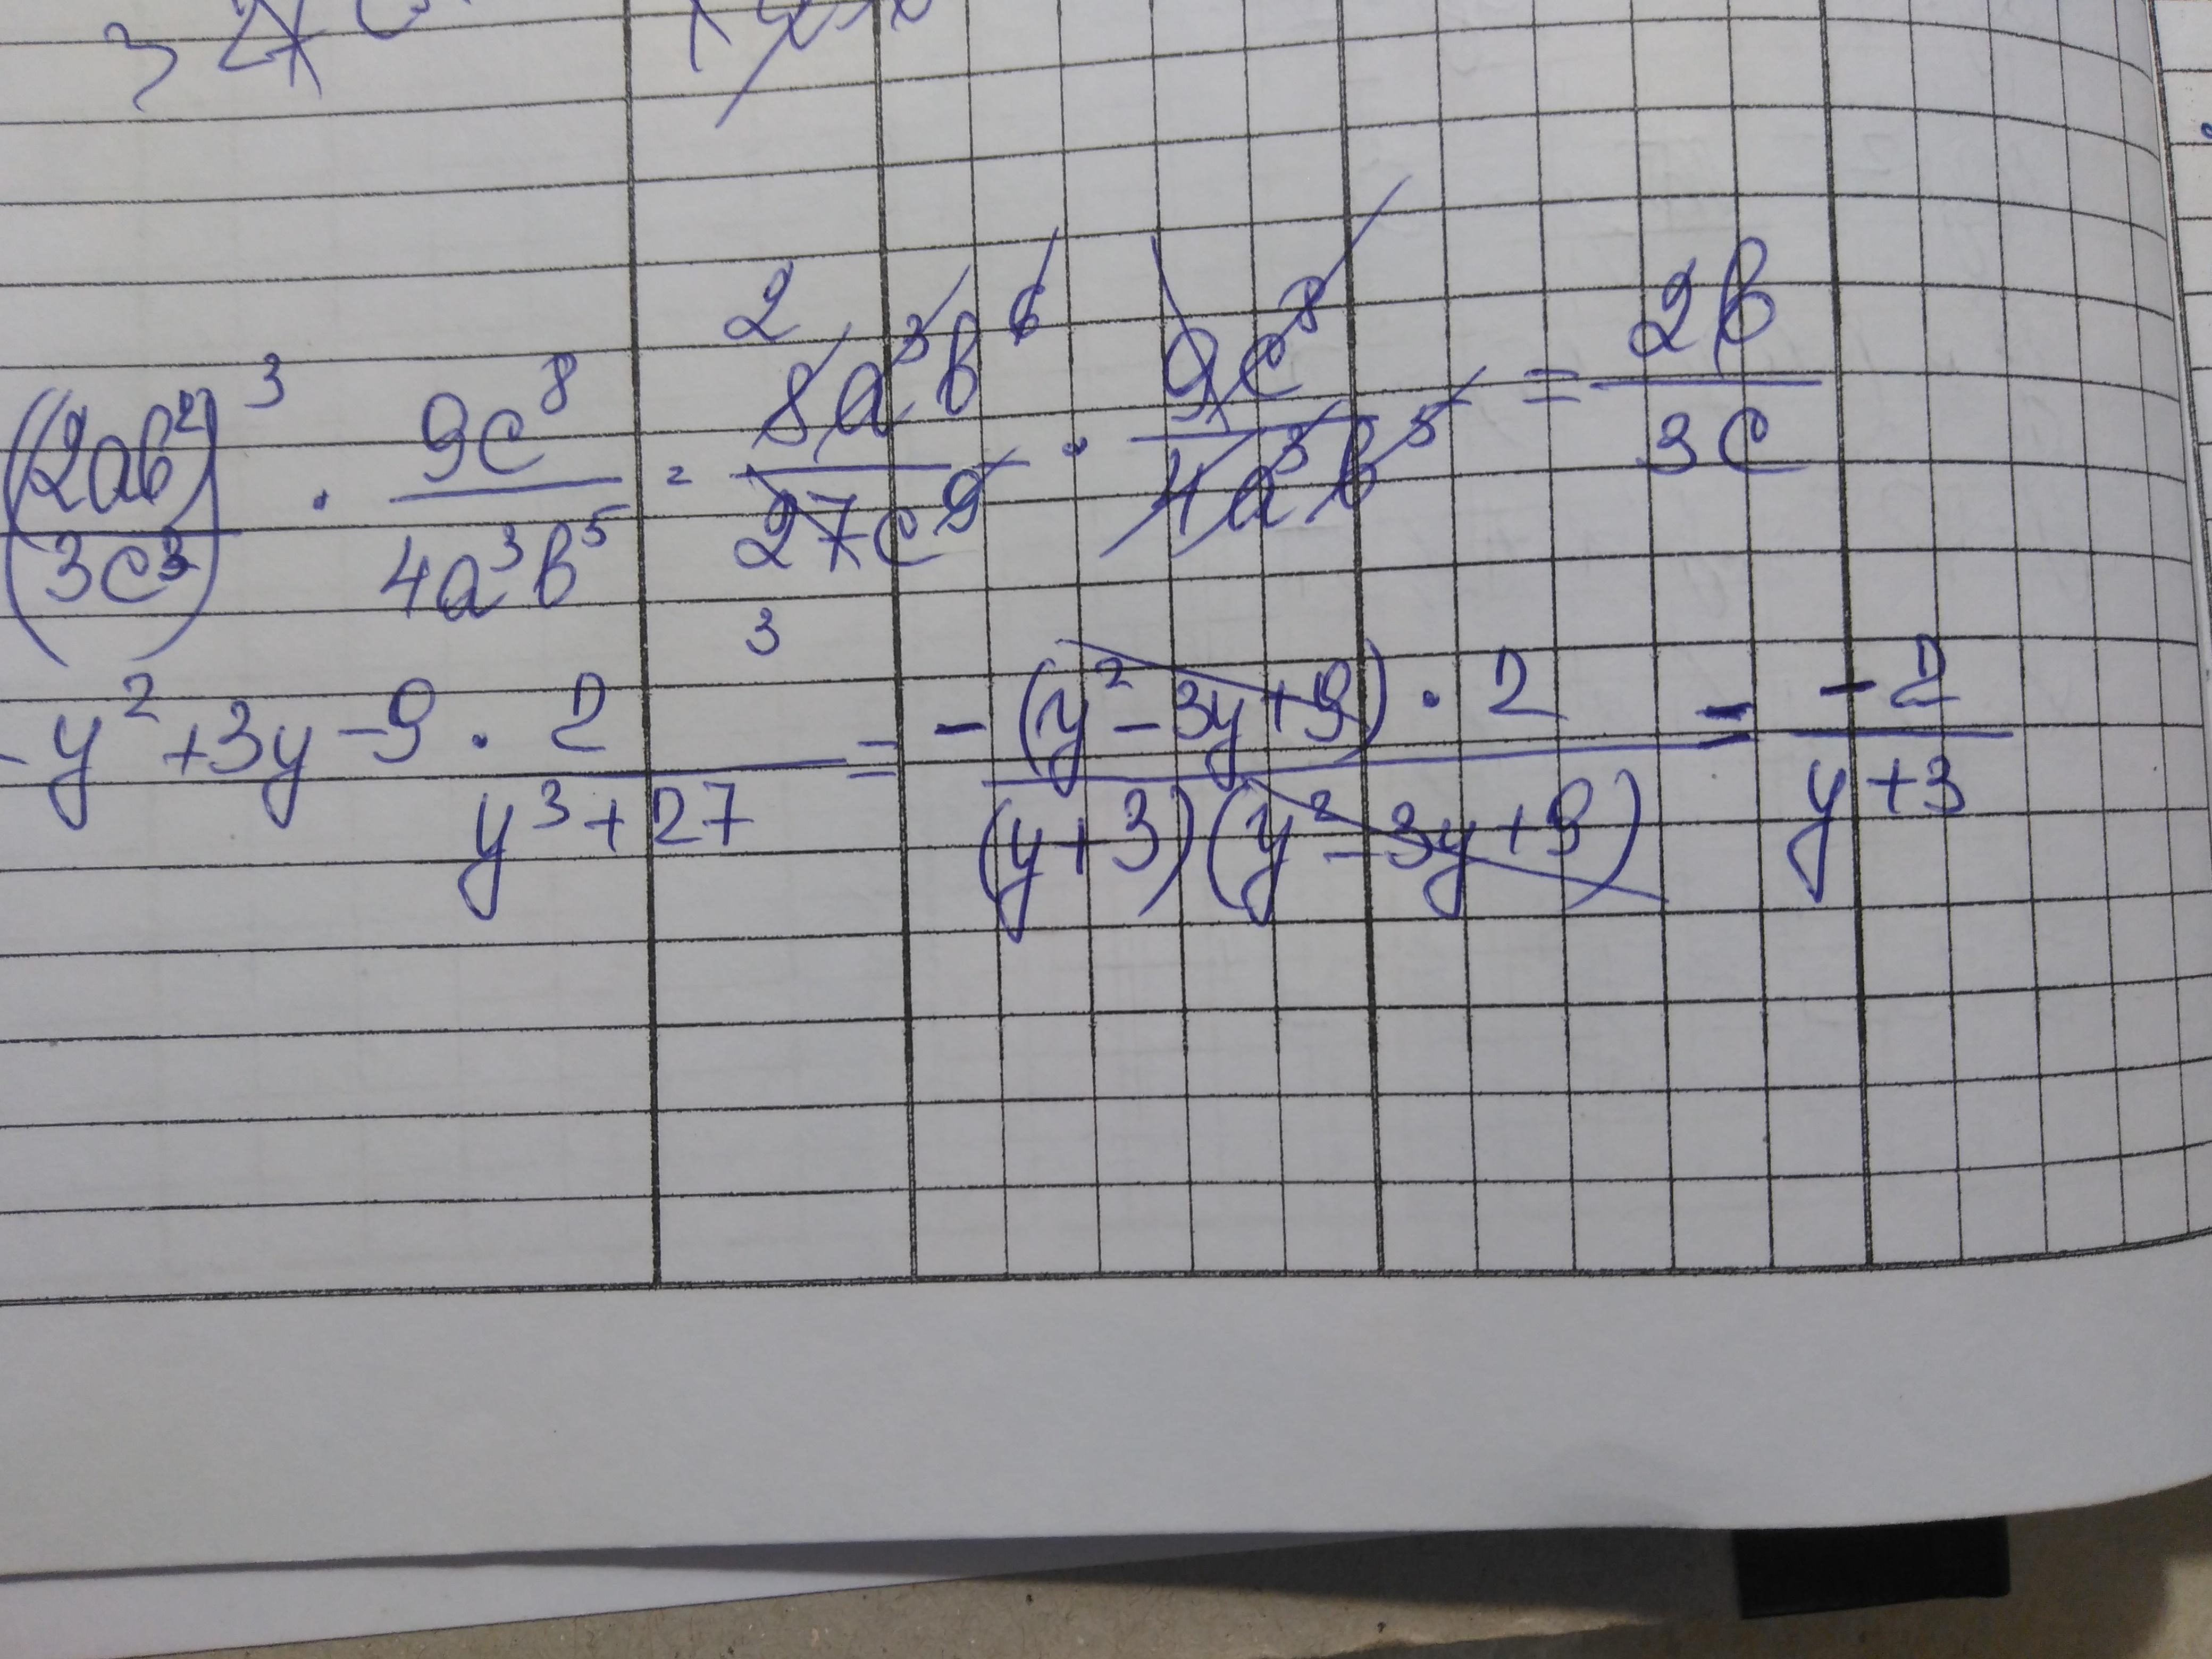 (2ab²/3c³)³ · 9c⁸/4a³b⁵ = 8a³b⁶/27c⁹ · 9c⁸/4a³b⁵ = 2b/3c
2
3
-y²+3y-9 · 2/y³+27 = -(y²-3y+9)·2/(y+3)(y²-3y+9) = -2/y+3